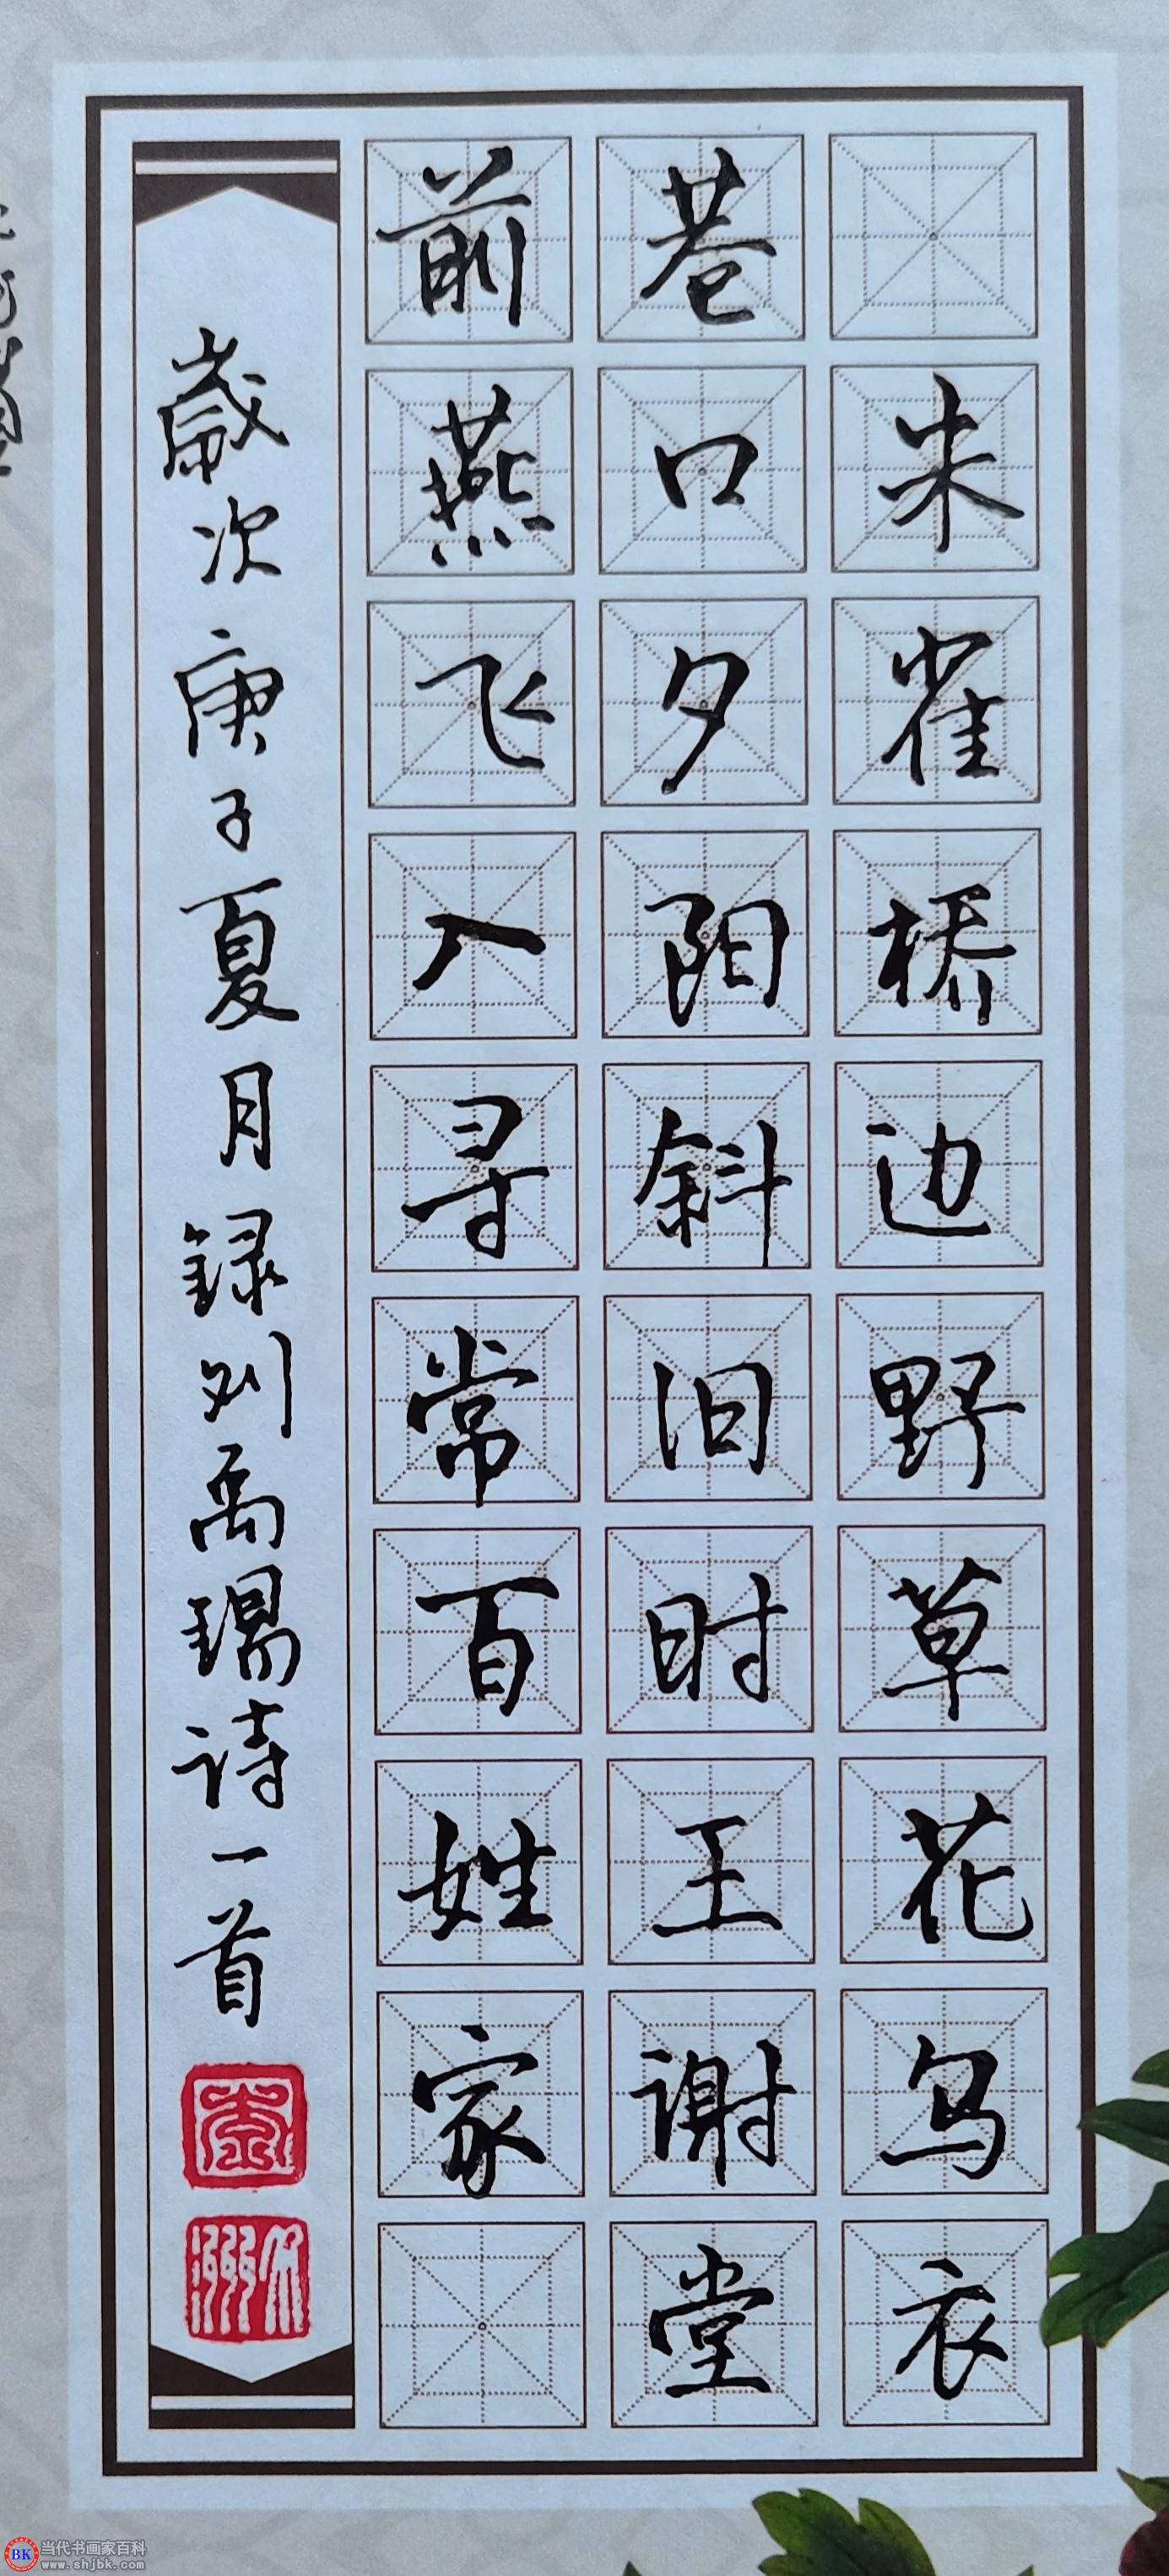 朱雀桥边野草花乌衣
巷口夕阳斜旧时王谢堂
前燕飞入寻常百姓家
歲次庚子夏月録刘禹锡诗一首
BK 当代书画家百科
www.shjbk.com